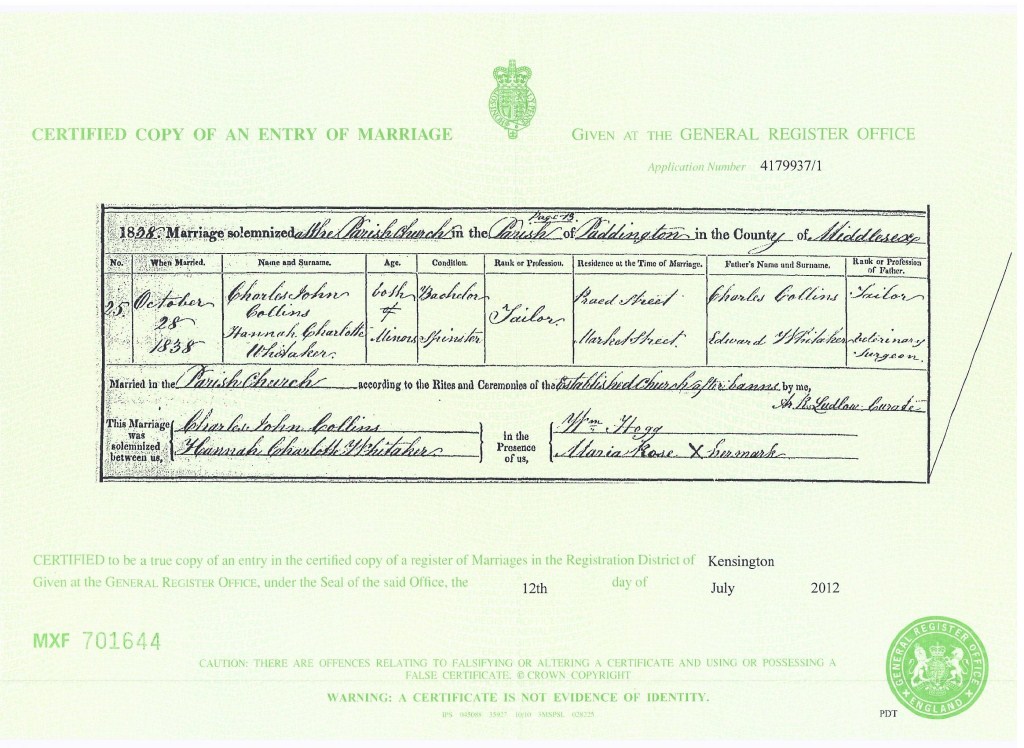 CERTIFIED COPY OF AN ENTRY OF MARRIAGE
GIVEN AT THE GENERAL REGISTER OFFICE
Application Number 4179937/1
Page 13
1838. Marriage solemnized at the Parish Church in the Parish of Paddington in the County of Middlesex
No. When Married. Name and Surname. Age. Condition. Rank or Profession. Residence at the Time of Marriage. Father's Name and Surname. Rank or Profession of Father.
25 October 28 1838
Charles John Collins both of Bachelor Tailor Praed Street Charles Collins Tailor
Hannah Charlotte Whitaker. Minors Spinster Market Street. Edward Whitaker Veterinary Surgeon.
Married in the Parish Church according to the Rites and Ceremonies of the Established Church after banns by me,
Ar. R. Ludlow Curate
This Marriage was solemnized between us, Charles John Collins
Hannah Charlotte Whitaker
in the Presence of us, Wm Hogg
Maria Rose X her mark
CERTIFIED to be a true copy of an entry in the certified copy of a register of Marriages in the Registration District of Kensington
Given at the GENERAL REGISTER OFFICE, under the Seal of the said Office, the 12th day of July 2012
MXF 701644
CAUTION: THERE ARE OFFENCES RELATING TO FALSIFYING OR ALTERING A CERTIFICATE AND USING OR POSSESSING A
FALSE CERTIFICATE. © CROWN COPYRIGHT
WARNING: A CERTIFICATE IS NOT EVIDENCE OF IDENTITY.
GENERAL REGISTER OFFICE
ENGLAND
PDT